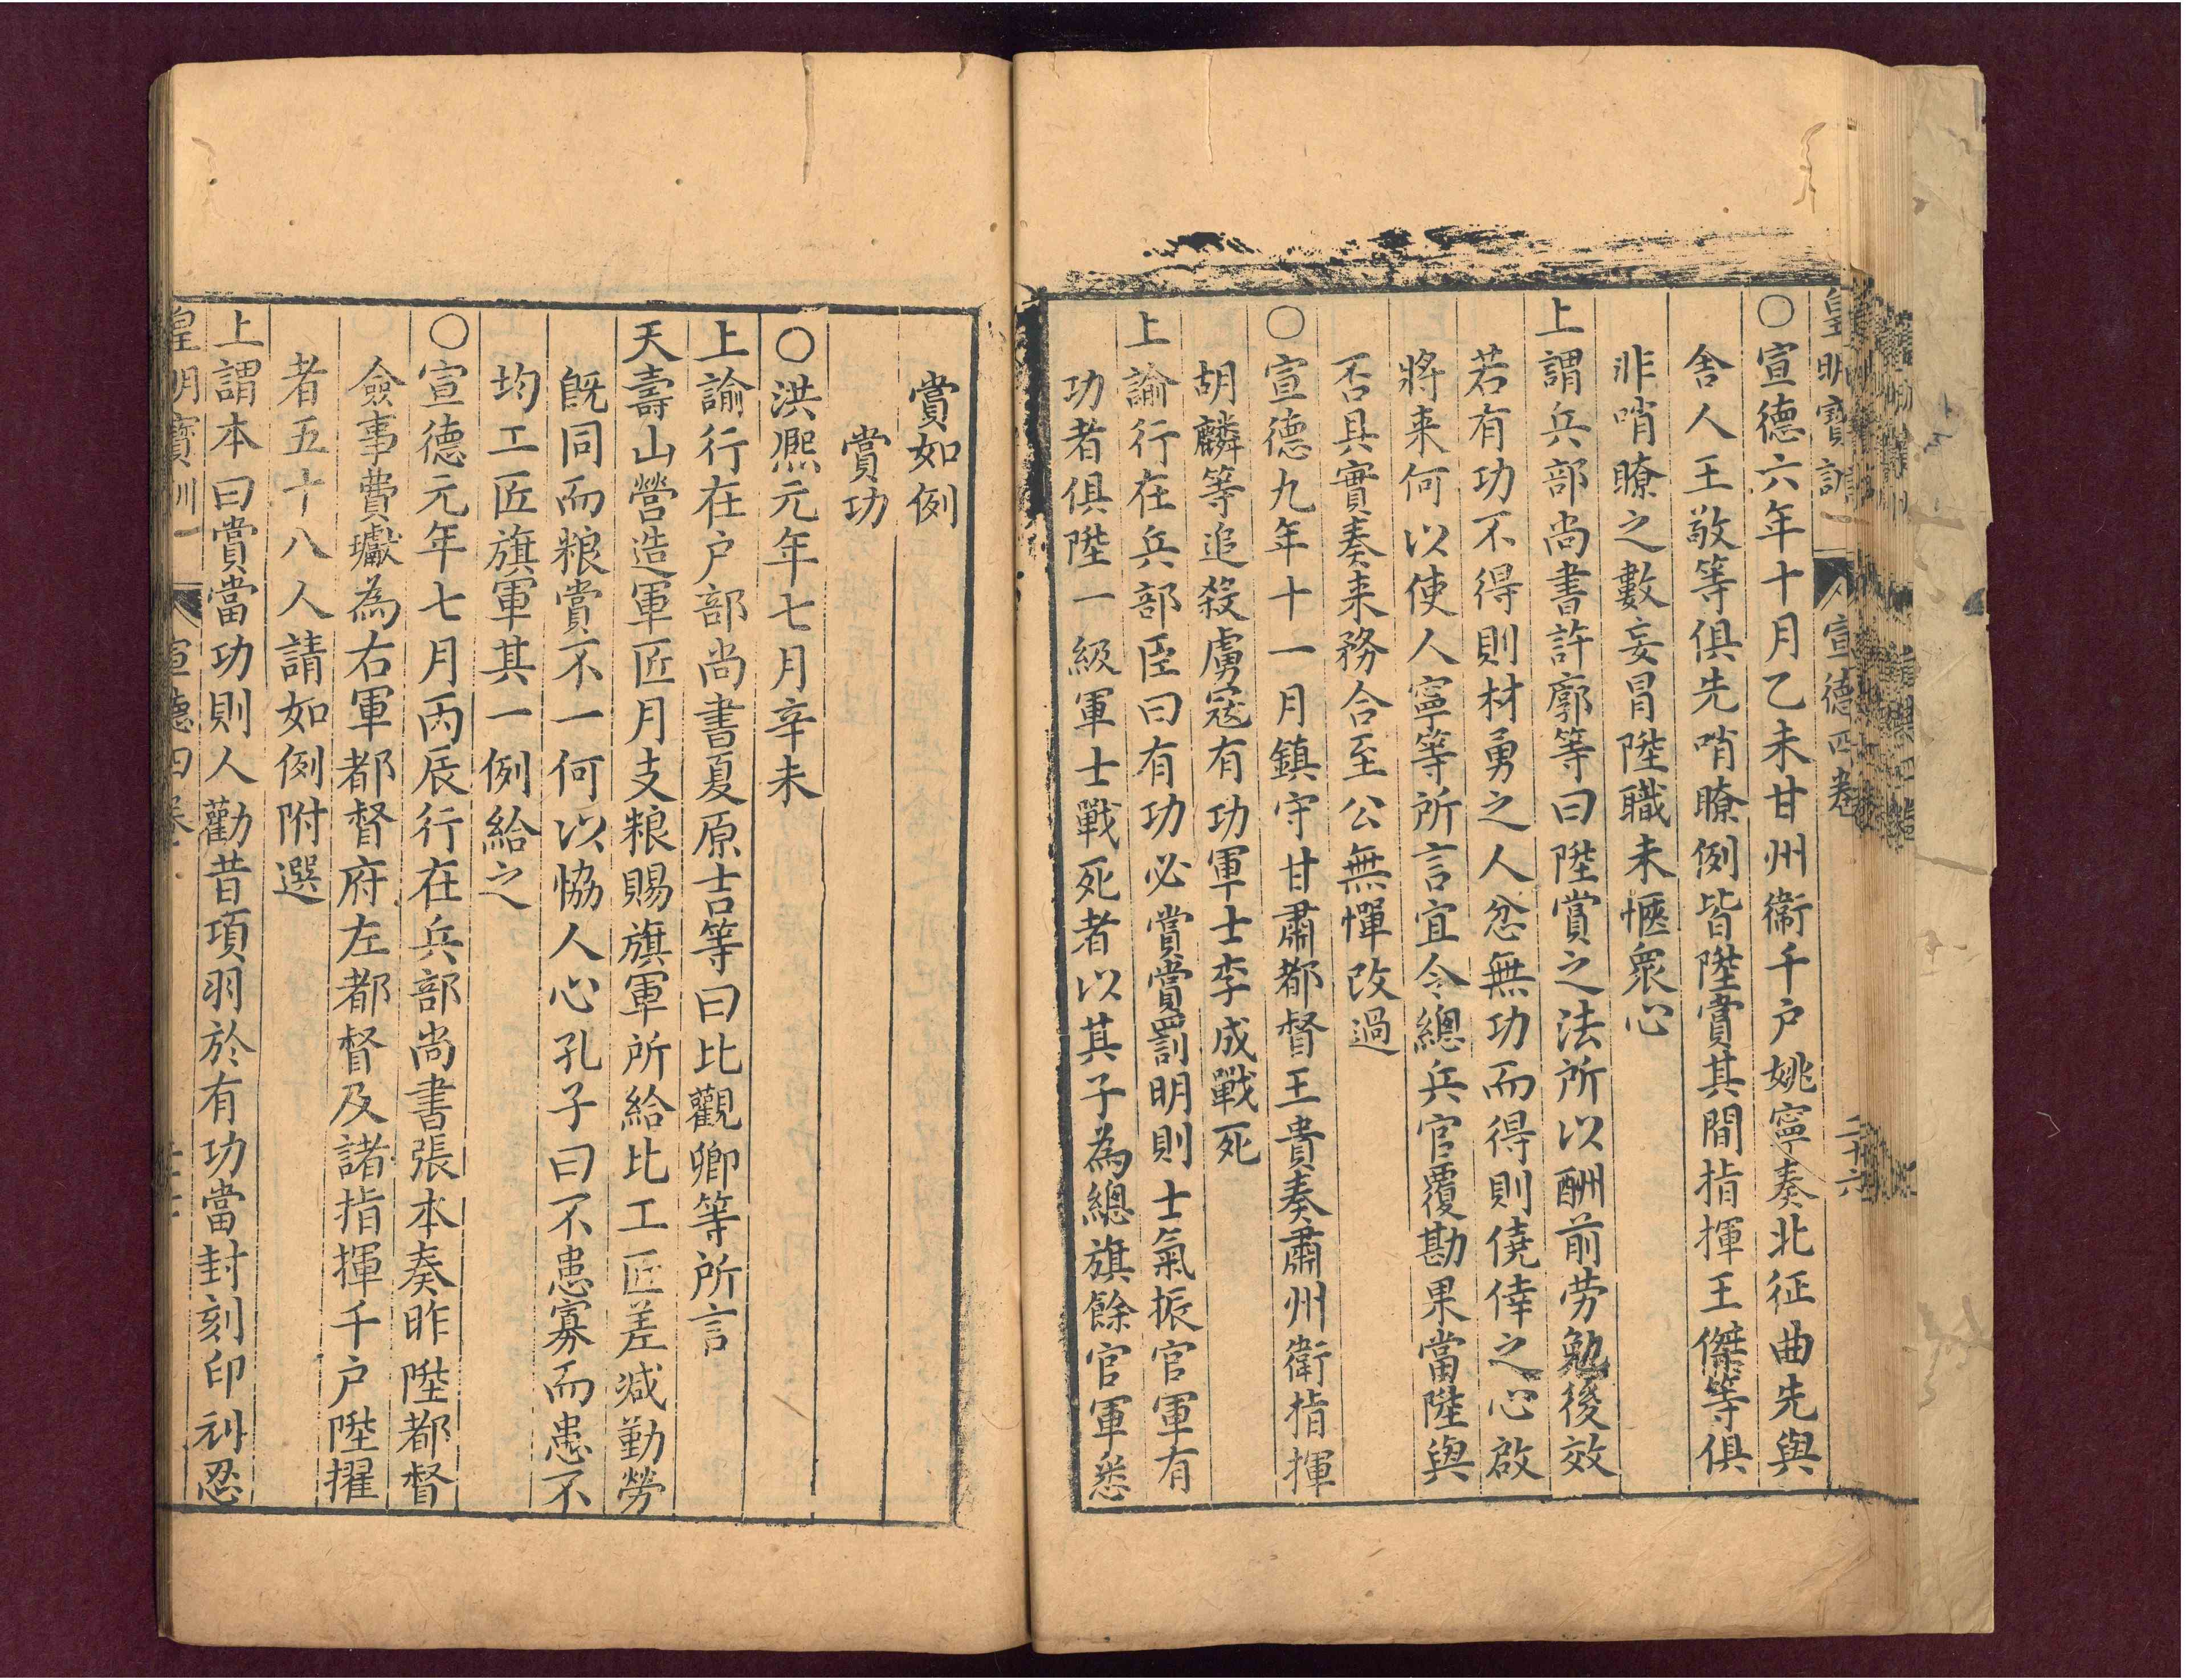 皇明寶訓一 宣德四卷 二十六
○宣德六年十月乙未甘州衞千户姚寧奏北征曲先與
舍人王敬等俱先哨瞭例皆陞賞其間指揮王傑等俱
非哨瞭之數妄冒陞職未愜衆心
上謂兵部尚書許廓等曰陞賞之法所以酬前劳勉後效
若有功不得則材勇之人忿無功而得則僥倖之心啟
將来何以使人寧等所言宜令總兵官覆勘果當陞與
否具實奏来務合至公無憚改過
○宣德九年十一月鎮守甘肅都督王貴奏肅州衛指揮
胡麟等追殺虜寇有功軍士李成戰死
上諭行在兵部臣曰有功必賞賞罰明則士氣振官軍有
功者俱陞一級軍士戰死者以其子為總旗餘官軍悉
賞如例
賞功
○洪熈元年七月辛未
上諭行在户部尚書夏原吉等曰比觀卿等所言
天壽山營造軍匠月支粮賜旗軍所給比工匠差减勤勞
既同而粮賞不一何以恊人心孔子曰不患寡而患不
均工匠旗軍其一例給之
○宣德元年七月丙辰行在兵部尚書張本奏昨陞都督
僉事費瓛為右軍都督府左都督及諸指揮千户陞擢
者五十八人請如例附選
上謂本曰賞當功則人勸昔項羽於有功當封刻印刓忍
皇明寶訓一 宣德四卷